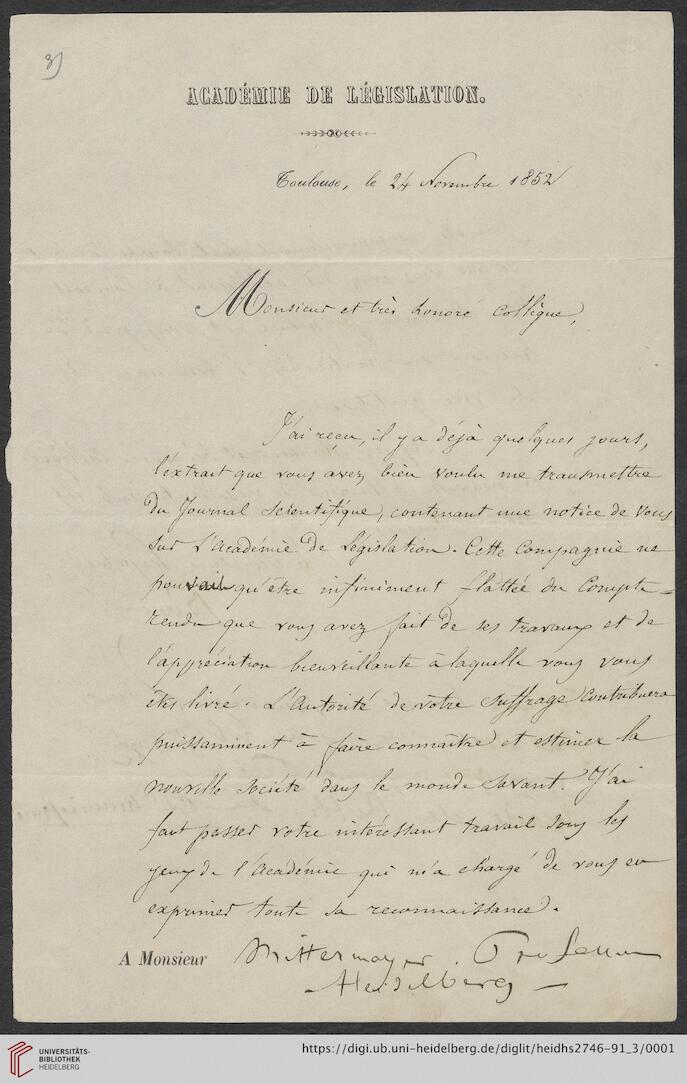 3)
ACADÉMIE DE LÉGISLATION.
Toulouse, le 24 Novembre 1852
Monsieur et très honoré collègue,
J'ai reçu, il y a déjà quelques jours,
l'extrait que vous avez bien voulu me transmettre
du Journal scientifique, contenant une notice de vous
sur l'Académie de Législation. Cette Compagnie ne
pouvait qu'être infiniment flattée du Compte=
rendu que vous avez fait de ses travaux et de
l'appréciation bienveillante à laquelle vous vous
êtes livré. L'autorité de votre suffrage contribuera
puissamment à faire connaître et estimer la
nouvelle société dans le monde savant. J'ai
fait passer votre intéressant travail sous les
yeux de l'Académie qui m'a chargé de vous en
exprimer toute sa reconnaissance.
A Monsieur Mittermayer, Professeur
Heidelberg
UNIVERSITÄTS-
BIBLIOTHEK
HEIDELBERG
https://digi.ub.uni-heidelberg.de/diglit/heidhs2746-91_3/0001